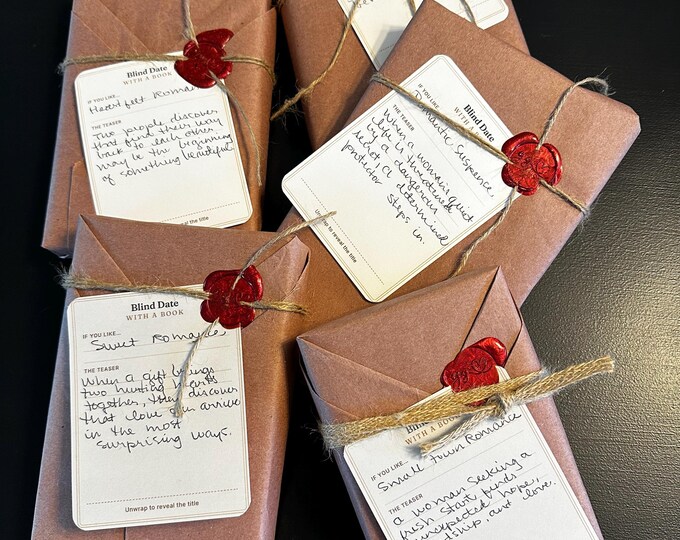 Blind Date
WITH A BOOK
IF YOU LIKE...
Heartfelt Roman
THE TEASER
Two people discover
that find their way
back to each other
may be the beginning
of something beautiful
Unwrap to reveal the title
Blind Date
WITH A BOOK
IF YOU LIKE...
Romantic Suspense
THE TEASER
When a woman quiet
life is threatened
by a dangerous
secret a determined
protector steps in.
Unwrap to reveal the title
Blind Date
WITH A BOOK
IF YOU LIKE...
Sweet Romance
THE TEASER
When a gift brings
two hurting hearts
together, they discover
that love can arrive
in the most
surprising ways.
Unwrap to reveal the title
Blind Date
WITH A BOOK
IF YOU LIKE...
Small town Romance
THE TEASER
a woman seeking a
fresh start finds
unexpected hope,
and love.